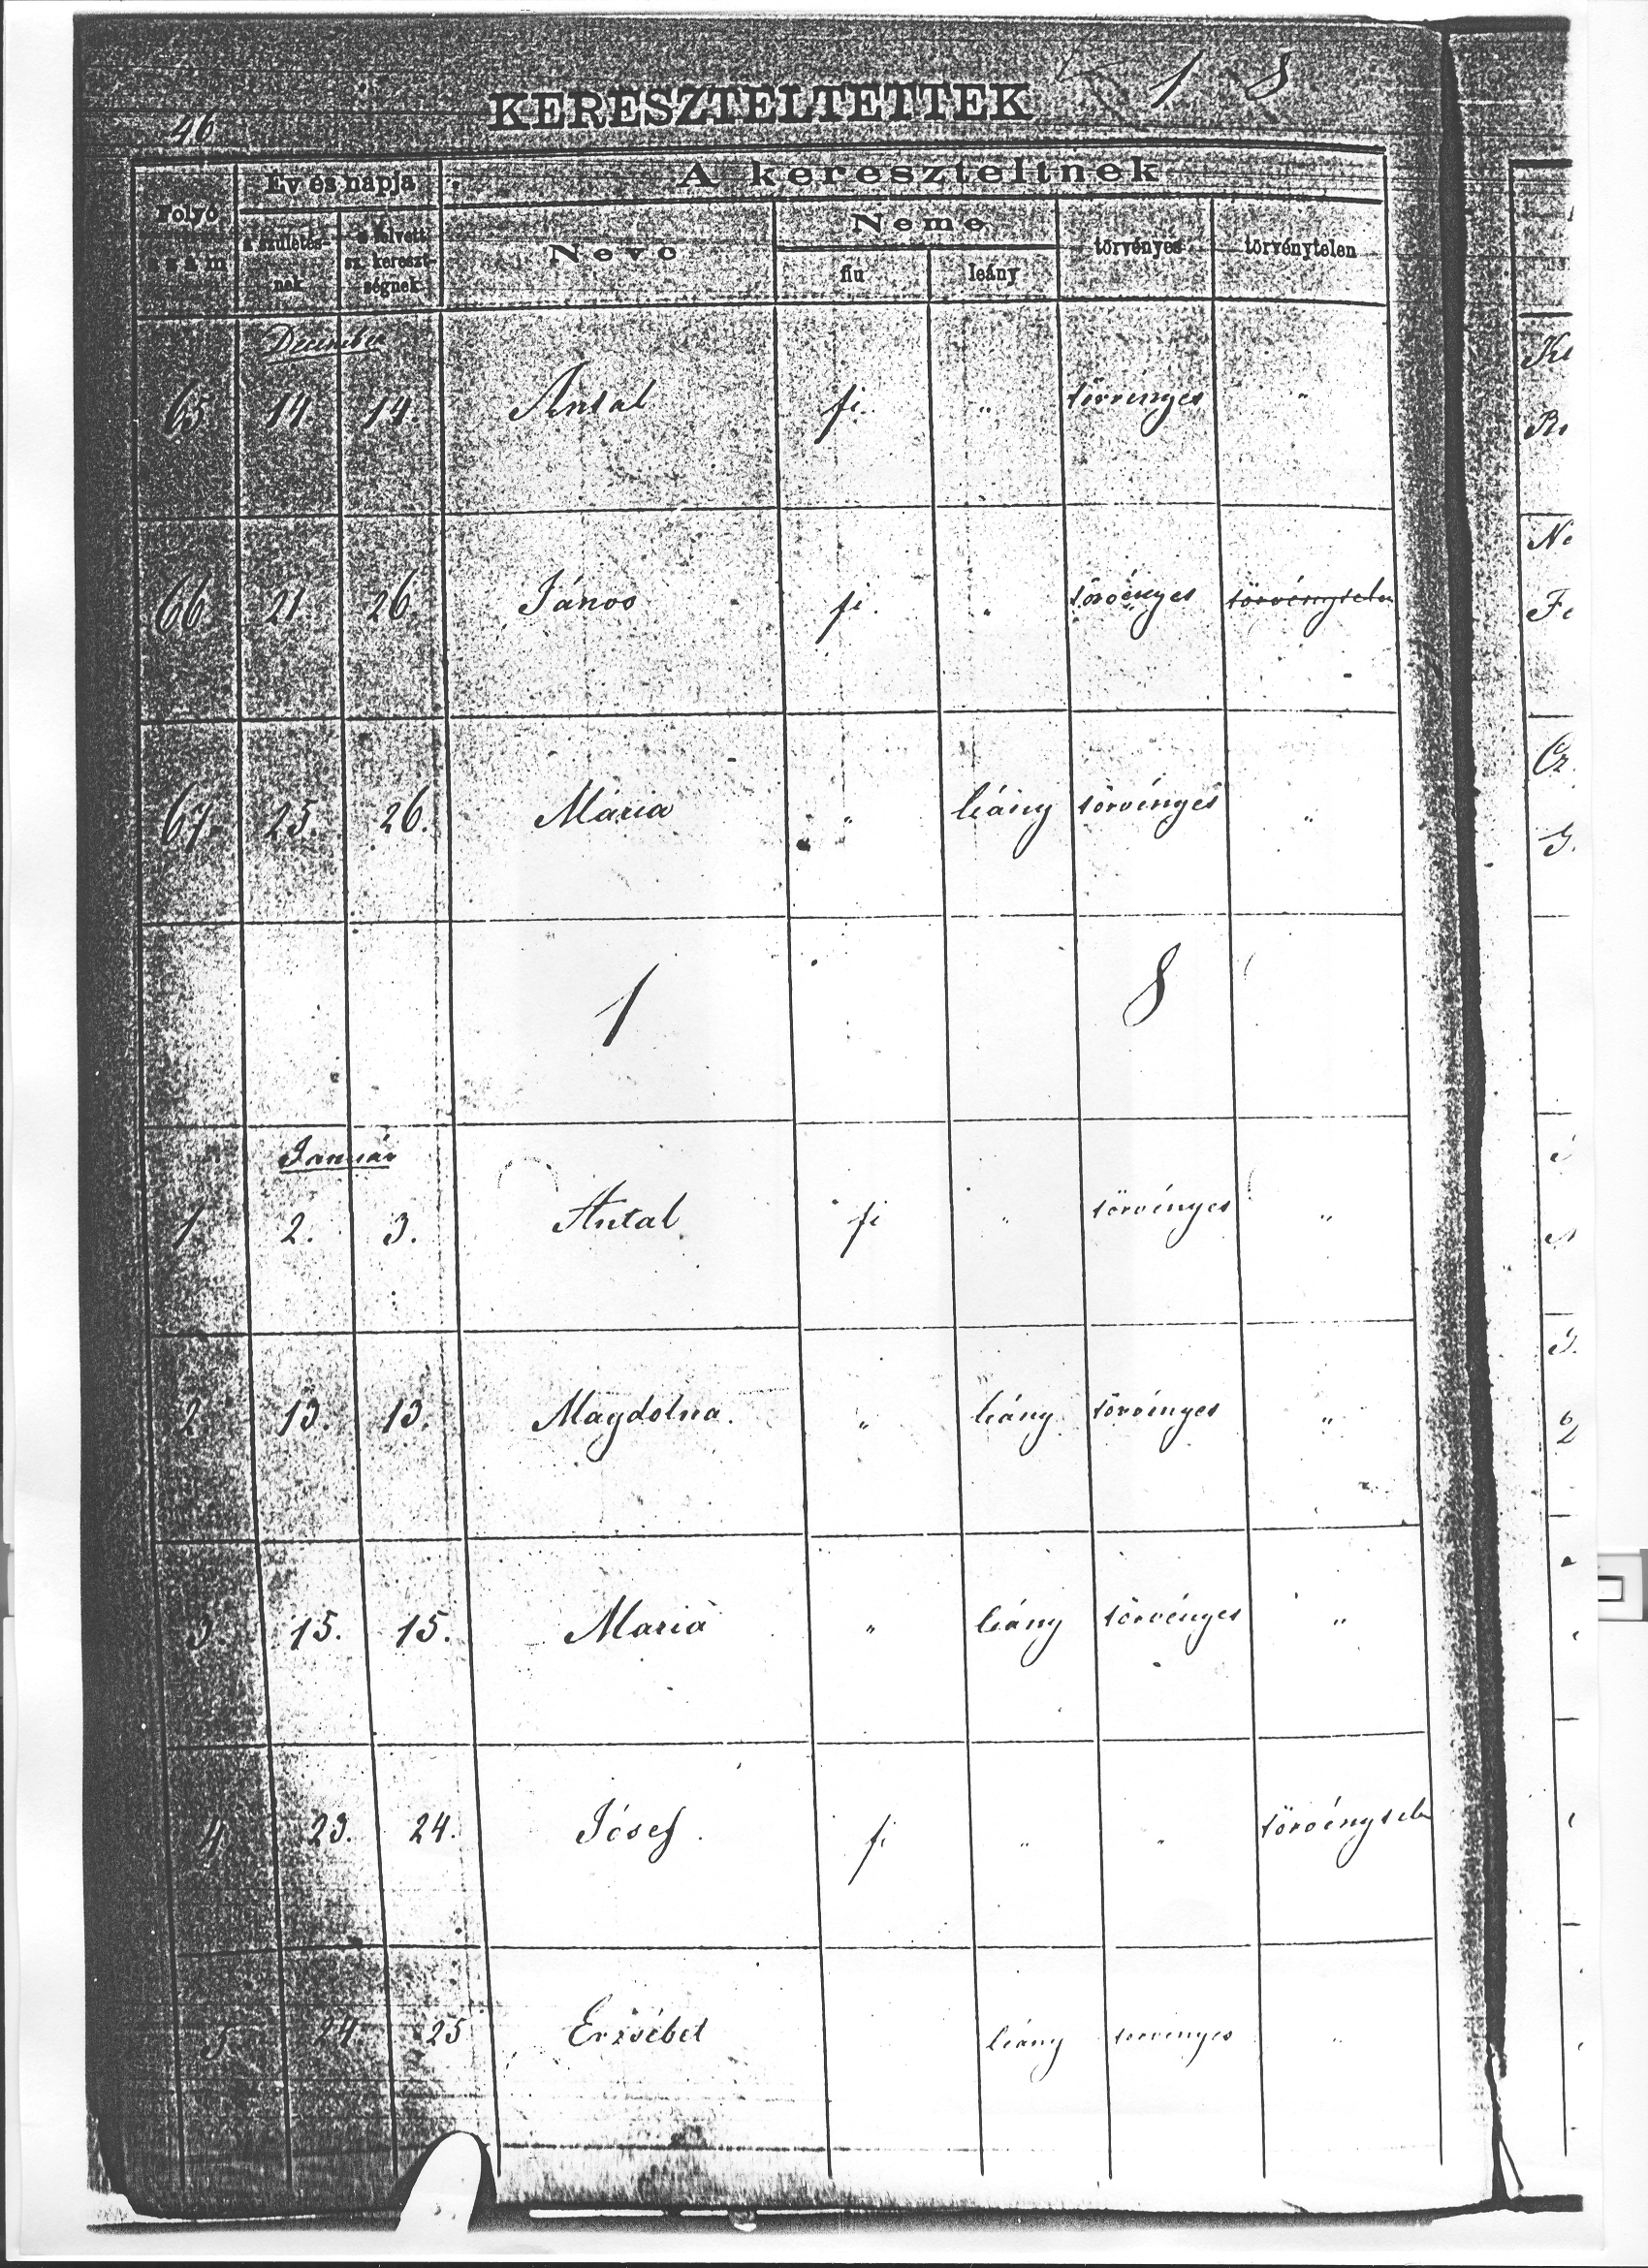 46
KERESZTELTETTEK 1 8
Folyó szám
Év és napja
a születés-nek
a felvett sz. kereszt-ségnek
A kereszteltnek
Neve
Neme
fiu
leány
törvényes
törvénytelen
December
65 14. 14. Antal fi. " törvényes "
66 21. 26 János fi. " törvényes törvénytelen
67 25. 26. Mária " leány törvényes "
1 8
Január
1. 2. 3. Antal fi " törvényes "
2 13. 13. Magdolna. " leány törvényes "
3 15. 15. Mariá " leány törvényes "
4 23. 24. Jósef. fi " " törvénytelen
5 24 25 Erzsébet leány törvényes "